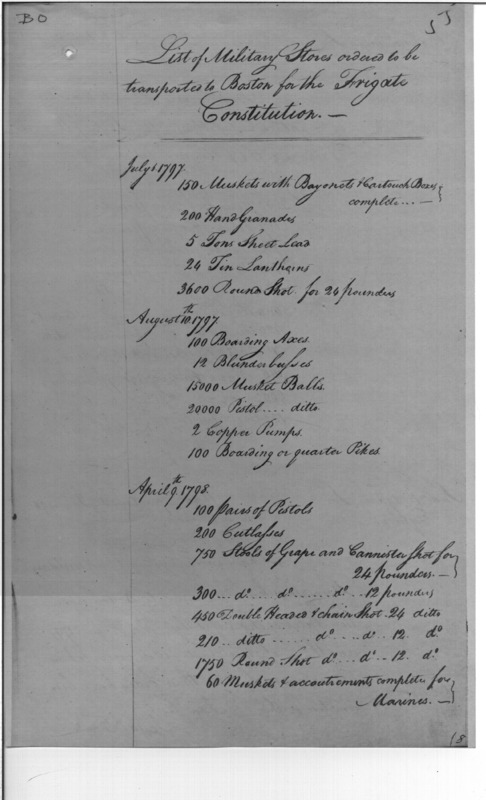 BO
55
List of Military Stores ordered to be
transported to Boston for the Frigate
Constitution. —
July 1797.
150 Muskets with Bayonets & Cartouch Boxes
complete ... —
200 Hand Granades
5 Tons Sheet Lead
24 Tin Lanthorns
3600 Round Shot for 24 pounders
August 10th 1797.
100 Boarding Axes.
12 Blunderbusses
15000 Musket Balls.
20000 Pistol .... ditto
2 Copper Pumps.
100 Boarding or quarter Pikes
April 9th 1798.
100 pairs of Pistols
200 Cutlasses
750 Stools of Grape and Cannister Shot for
24 pounders. —
300 ... do. ... do. ...... do. .. 12 pounders
450 Double Headed & chain Shot . 24 ditto
210 .. ditto ....... do. ... do. .. 12. do.
1750 Round Shot do. ... do. .. 12. do.
60 Muskets & accoutrements complete for
Marines. —